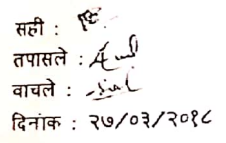 सही :
तपासले :
वाचले :
दिनांक : २७/०३/२०१८